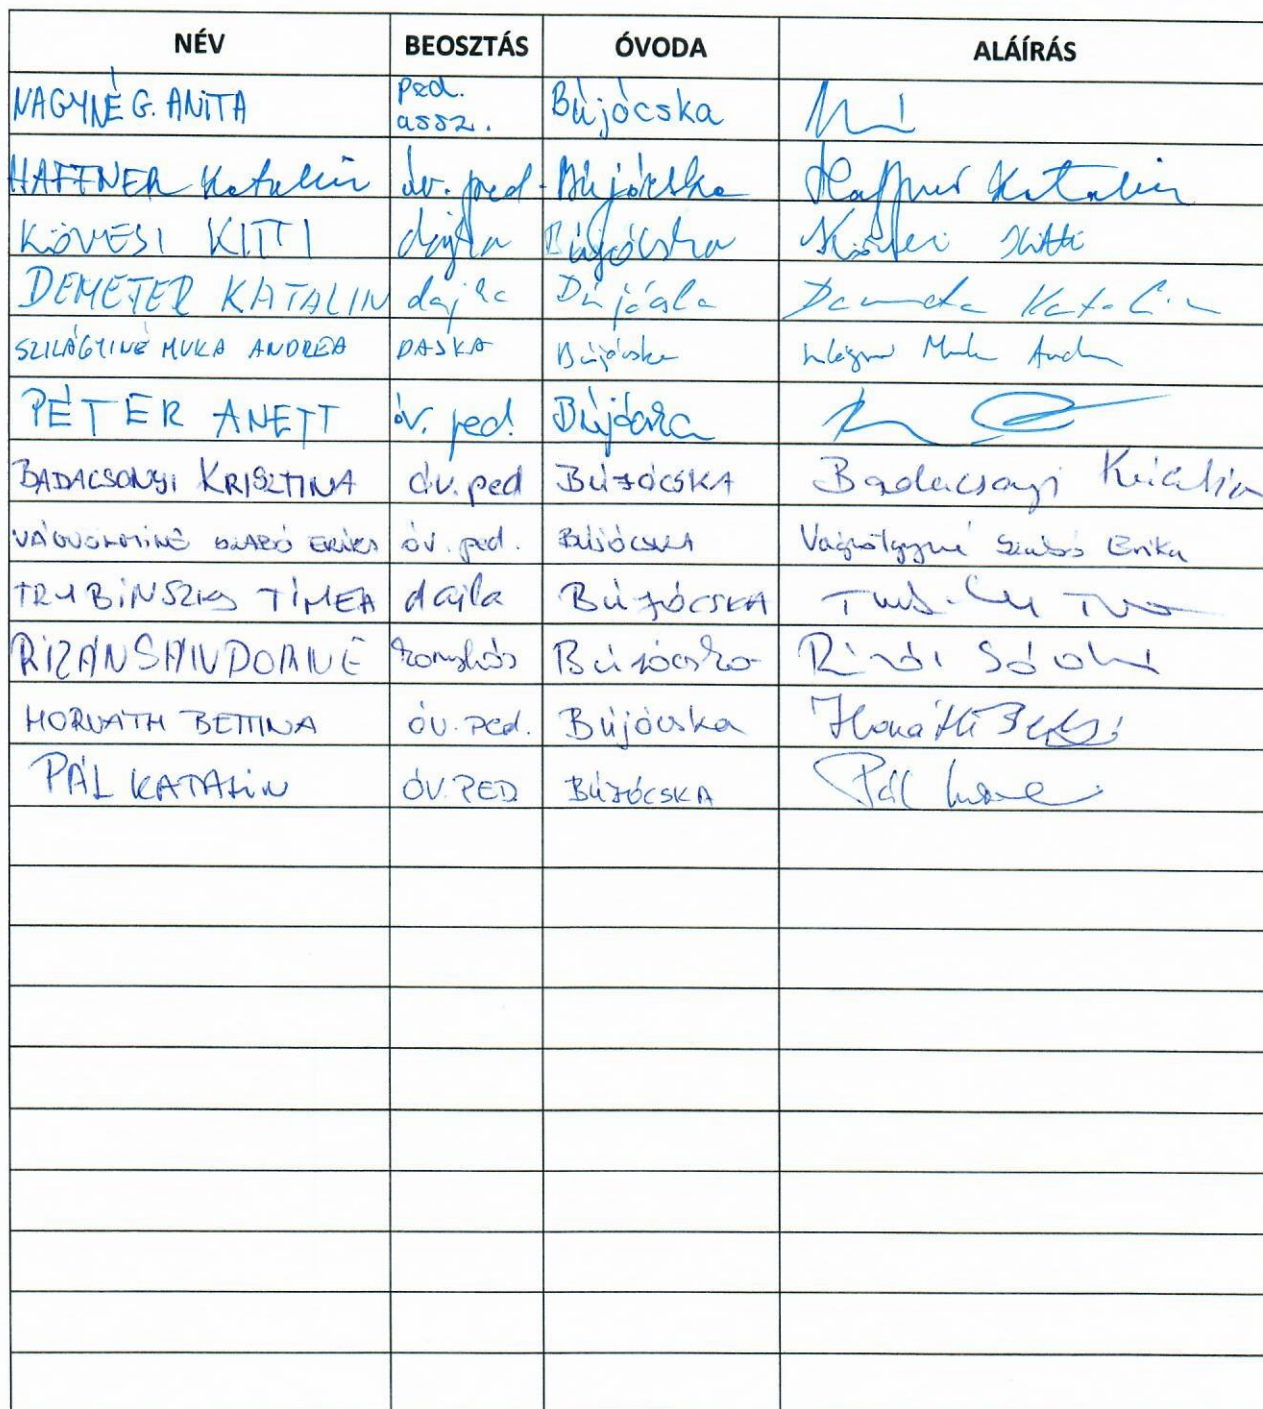 NÉV BEOSZTÁS ÓVODA ALÁÍRÁS
NAGYNÉ G. ANITA ped. assz. Bújócska
HAFFNER Katalin óv. ped. Bújócska Haffner Katalin
KÖVESI KITTI dajka Bújócska Kövesi Kitti
DEMETER KATALIN dajka Bújócska Demeter Katalin
SZILÁGYINÉ MUKA ANDREA DAJKA Bújócska
PÉTER ANETT óv. ped. Bújócska
BADACSONYI KRISZTINA óv. ped BÚJÓCSKA Badacsonyi Krisztina
VÁGVÖLGYINÉ SZABÓ ERIKA óv. ped. BÚJÓCSKA Vágvölgyiné Szabó Erika
TRUBINSZKY TÍMEA dajka BÚJÓCSKA
RIZÁN SÁNDORNÉ konyhás Bújócska
HORVÁTH BETTINA óv. ped. Bújócska Horváth
PÁL KATALIN ÓV. PED BÚJÓCSKA Pál